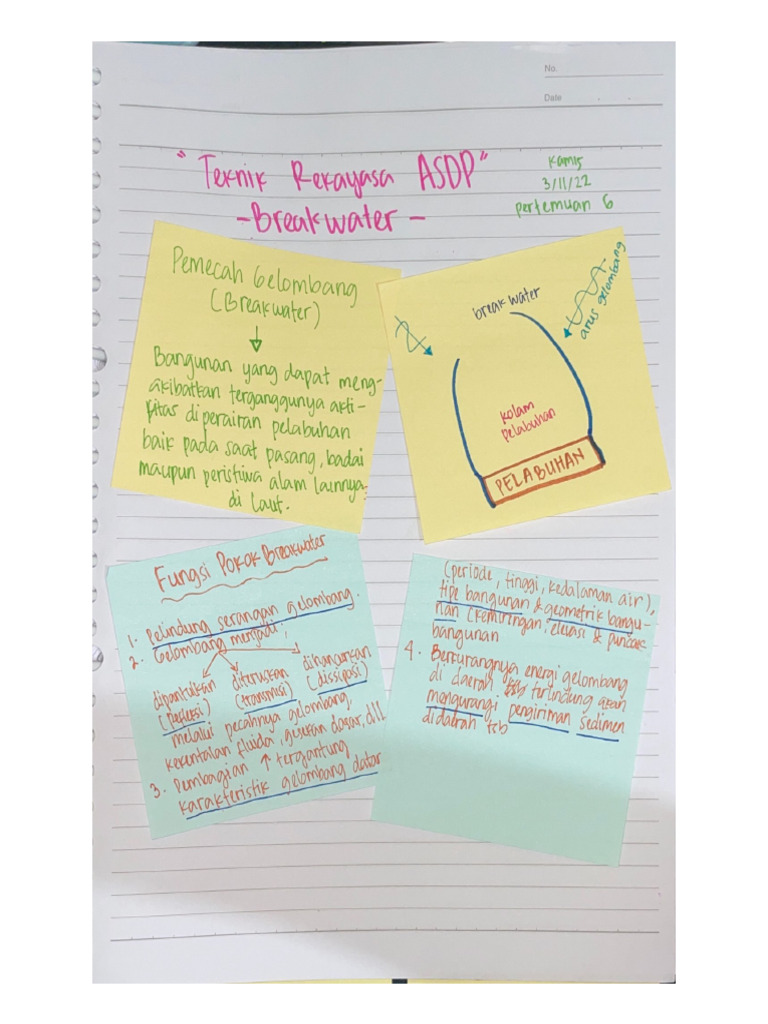 No.
Date
"Teknik Rekayasa ASDP"
-Breakwater-
Kamis
3/11/22
pertemuan 6
Pemecah Gelombang
(Breakwater)
Bangunan yang dapat meng-
akibatkan terganggunya akti-
fitas diperairan pelabuhan
baik pada saat pasang, badai
maupun peristiwa alam lainnya
di laut.
breakwater
arus gelombang
kolam
pelabuhan
PELABUHAN
Fungsi Pokok Breakwater
1. Pelindung serangan gelombang.
2. Gelombang menjadi:
dipantulkan
(refleksi)
diteruskan
(transmisi)
dihancurkan
(dissipasi)
melalui pecahnya gelombang,
kekentalan fluida, gesekan dasar, dll
3. Pembagian ↑ tergantung
karakteristik gelombang datar
(periode, tinggi, kedalaman air),
tipe bangunan & geometrik bangu-
nan (kemiringan, elevasi & puncak
bangunan
4. Berkurangnya energi gelombang
di daerah terlindung akan
mengurangi pengiriman sedimen
didaerah tsb